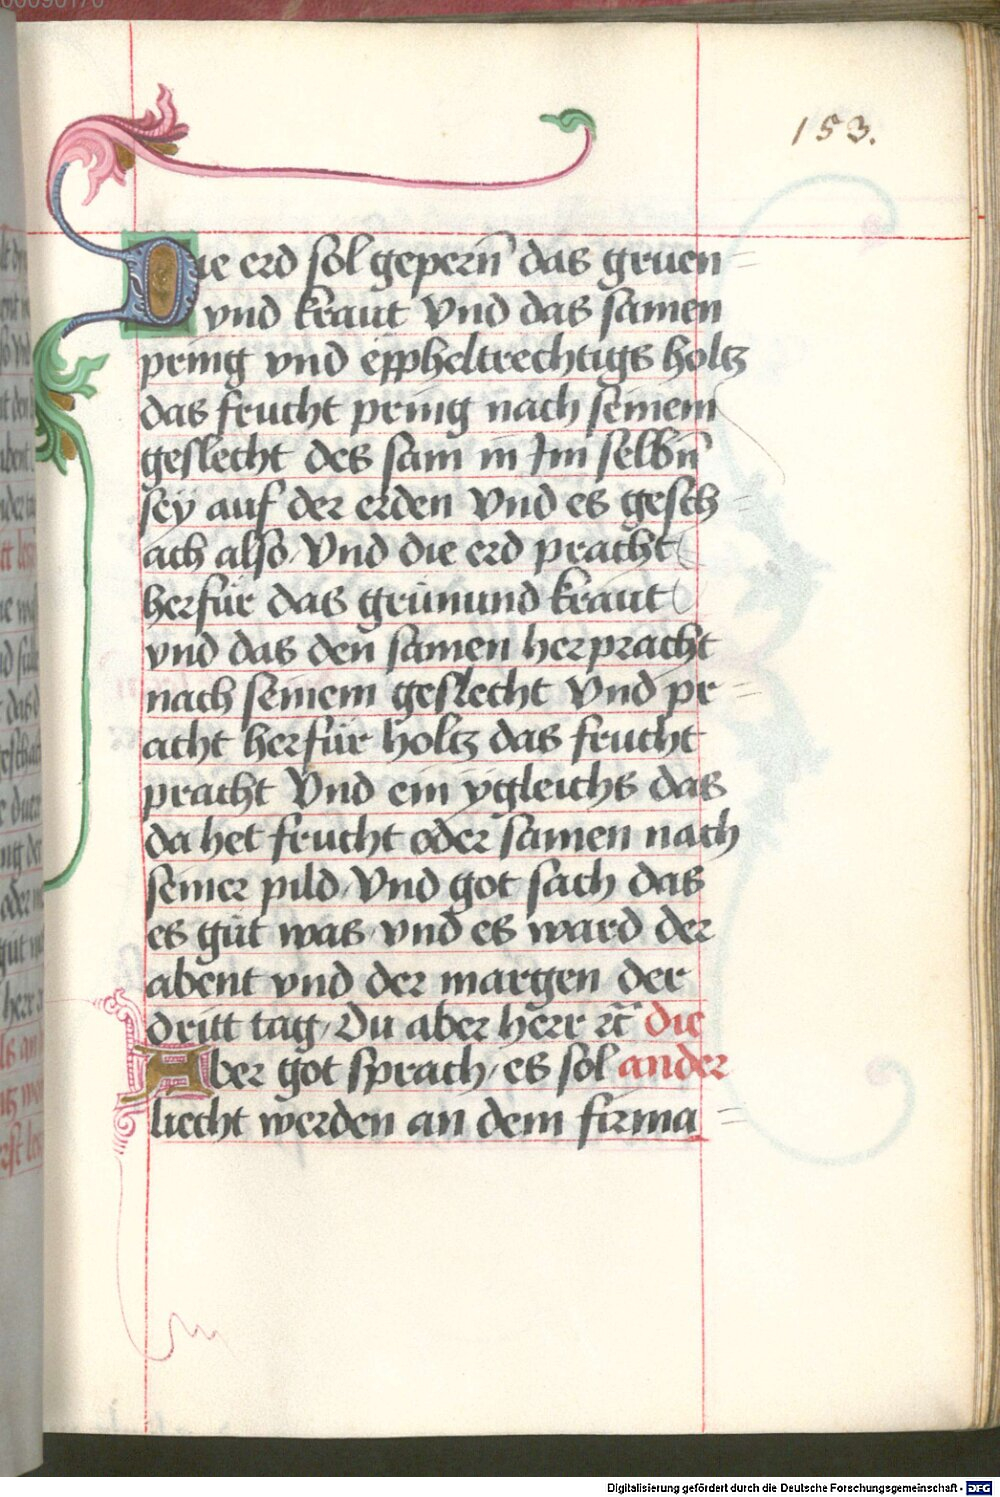 153.
Die erd sol geperñ das gruen
vnd kraut Vnd das samen
pring vnd epffheltrechtigs holtz
das frucht pring nach seinem
geslecht des sam in Im selbñ
sey auf der erden Vnd es gesch
ach also Vnd die erd pracht
herfür das grünund kraut
vnd das den samen herpracht
nach seinem geslecht Vnd pr
acht herfür holtz das frucht
pracht Vnd ein ygleichs das
da het frucht oder samen nach
seiner pild Vnd got sach das
es güt was vnd es ward der
abent vnd der margen der
dritt tag Du aber herre ꝛc̃ die
Aber got sprach es sol ander
liecht werden an dem firma
Digitalisierung gefördert durch die Deutsche Forschungsgemeinschaft - DFG